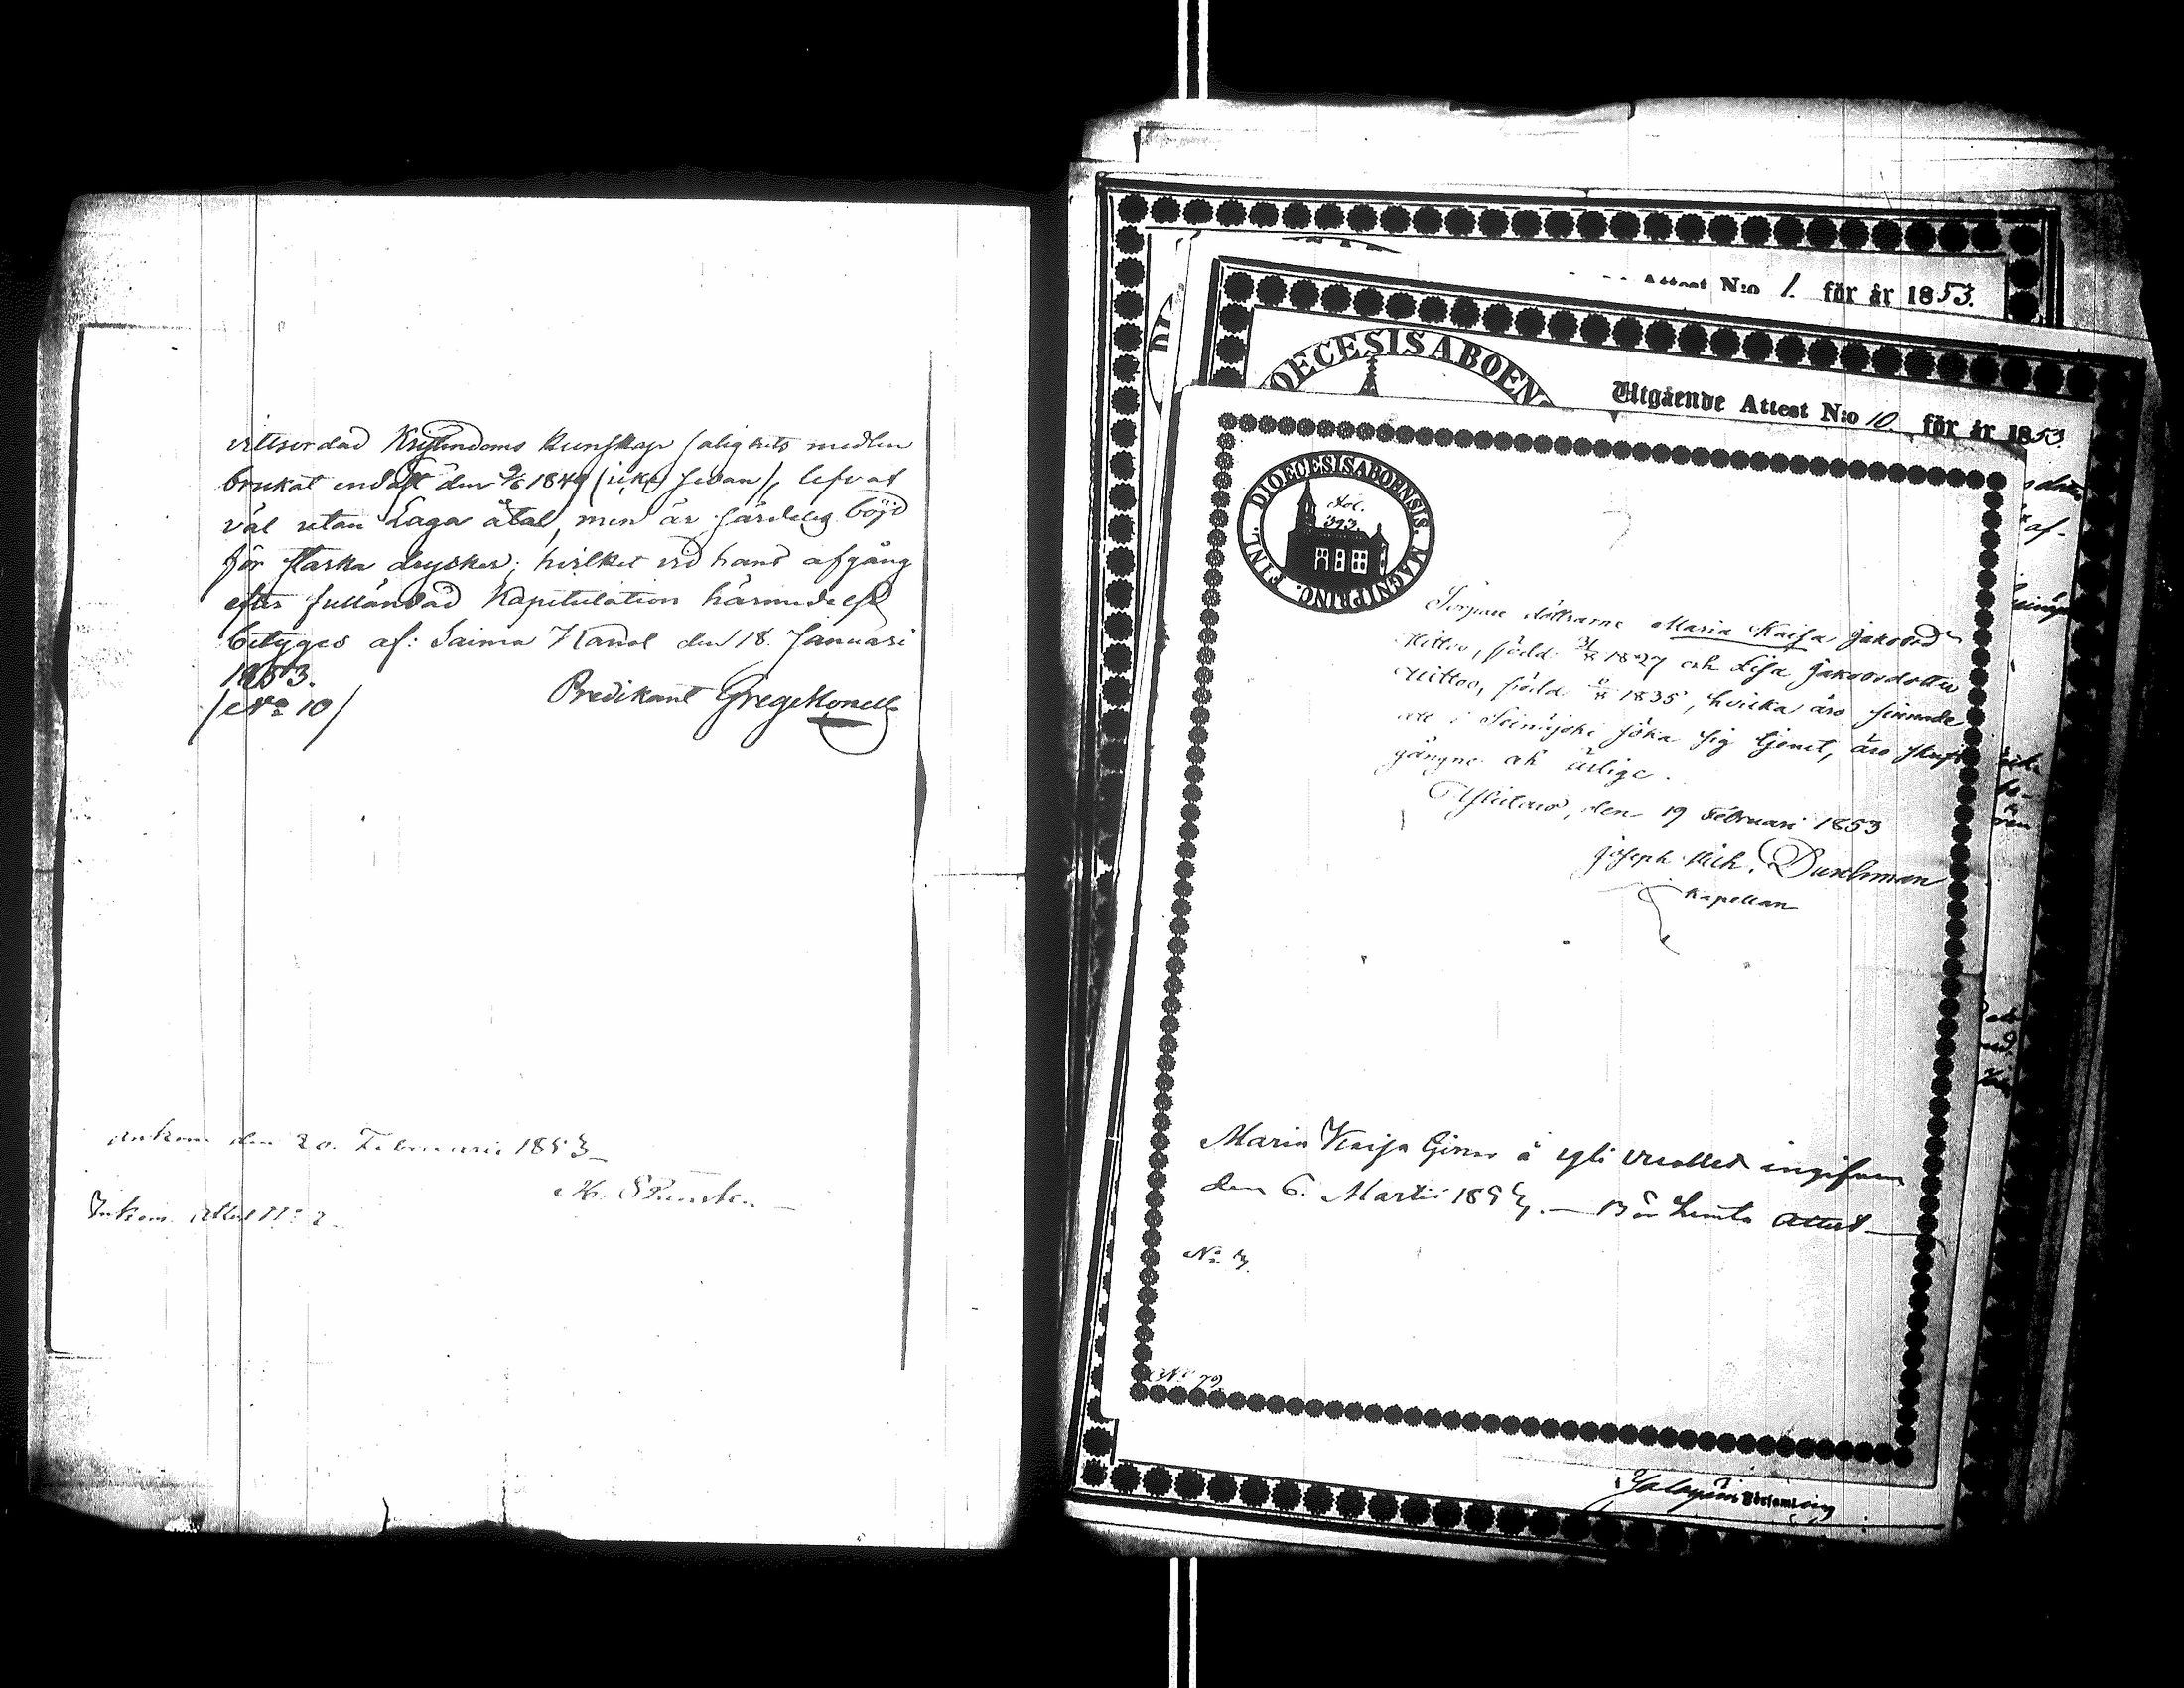 vittsordad Kristendoms kunskap salighets medlen
brukat endast den 9/6 1849 (icke sedan), lefvat
väl utan Laga åtal, men är färdelig böjd
för starka drycker; hvilket vid hans afgång
efter fulländad Kapitulation härmedelst
betyges af: Saima Kanal den 18. Januari
1853.
/No 10/ Predikant Greg Monell
Inkom den 20. Februarii 1853
Inkom. Attest No 2
Attest N:o 1. för år 1853.
DIOECESIS ABOENS
Utgående Attest N:o 10 för år 1853
DIOECESIS ABOENSIS. MAGNI PRINC. FINL.
Fol.
393.
Torpare döttrarne Maria Kaisa Jakobsd:r
född 1827 och Lisa Jakobsdotter
född 1835, hvilka äro sinnade
att i Seinäjoki söka sig tjenst, äro skrift
gångne och ärlige.
Ylistaro, den 19 Februari 1853
Joseph Mich. Durchman
Kapellan
Maria Kaisa
den 6. Martii 1853. Attest
No 3.
(No 79)
Församling